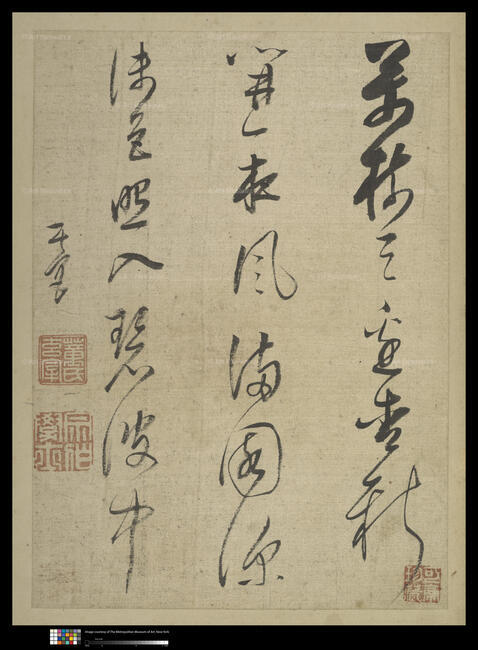 萬樹江邊杏新
開一夜風滿園深
淺色照入碧波中
其昌
董氏玄宰
宗伯學士
Image courtesy of The Metropolitan Museum of Art, New York